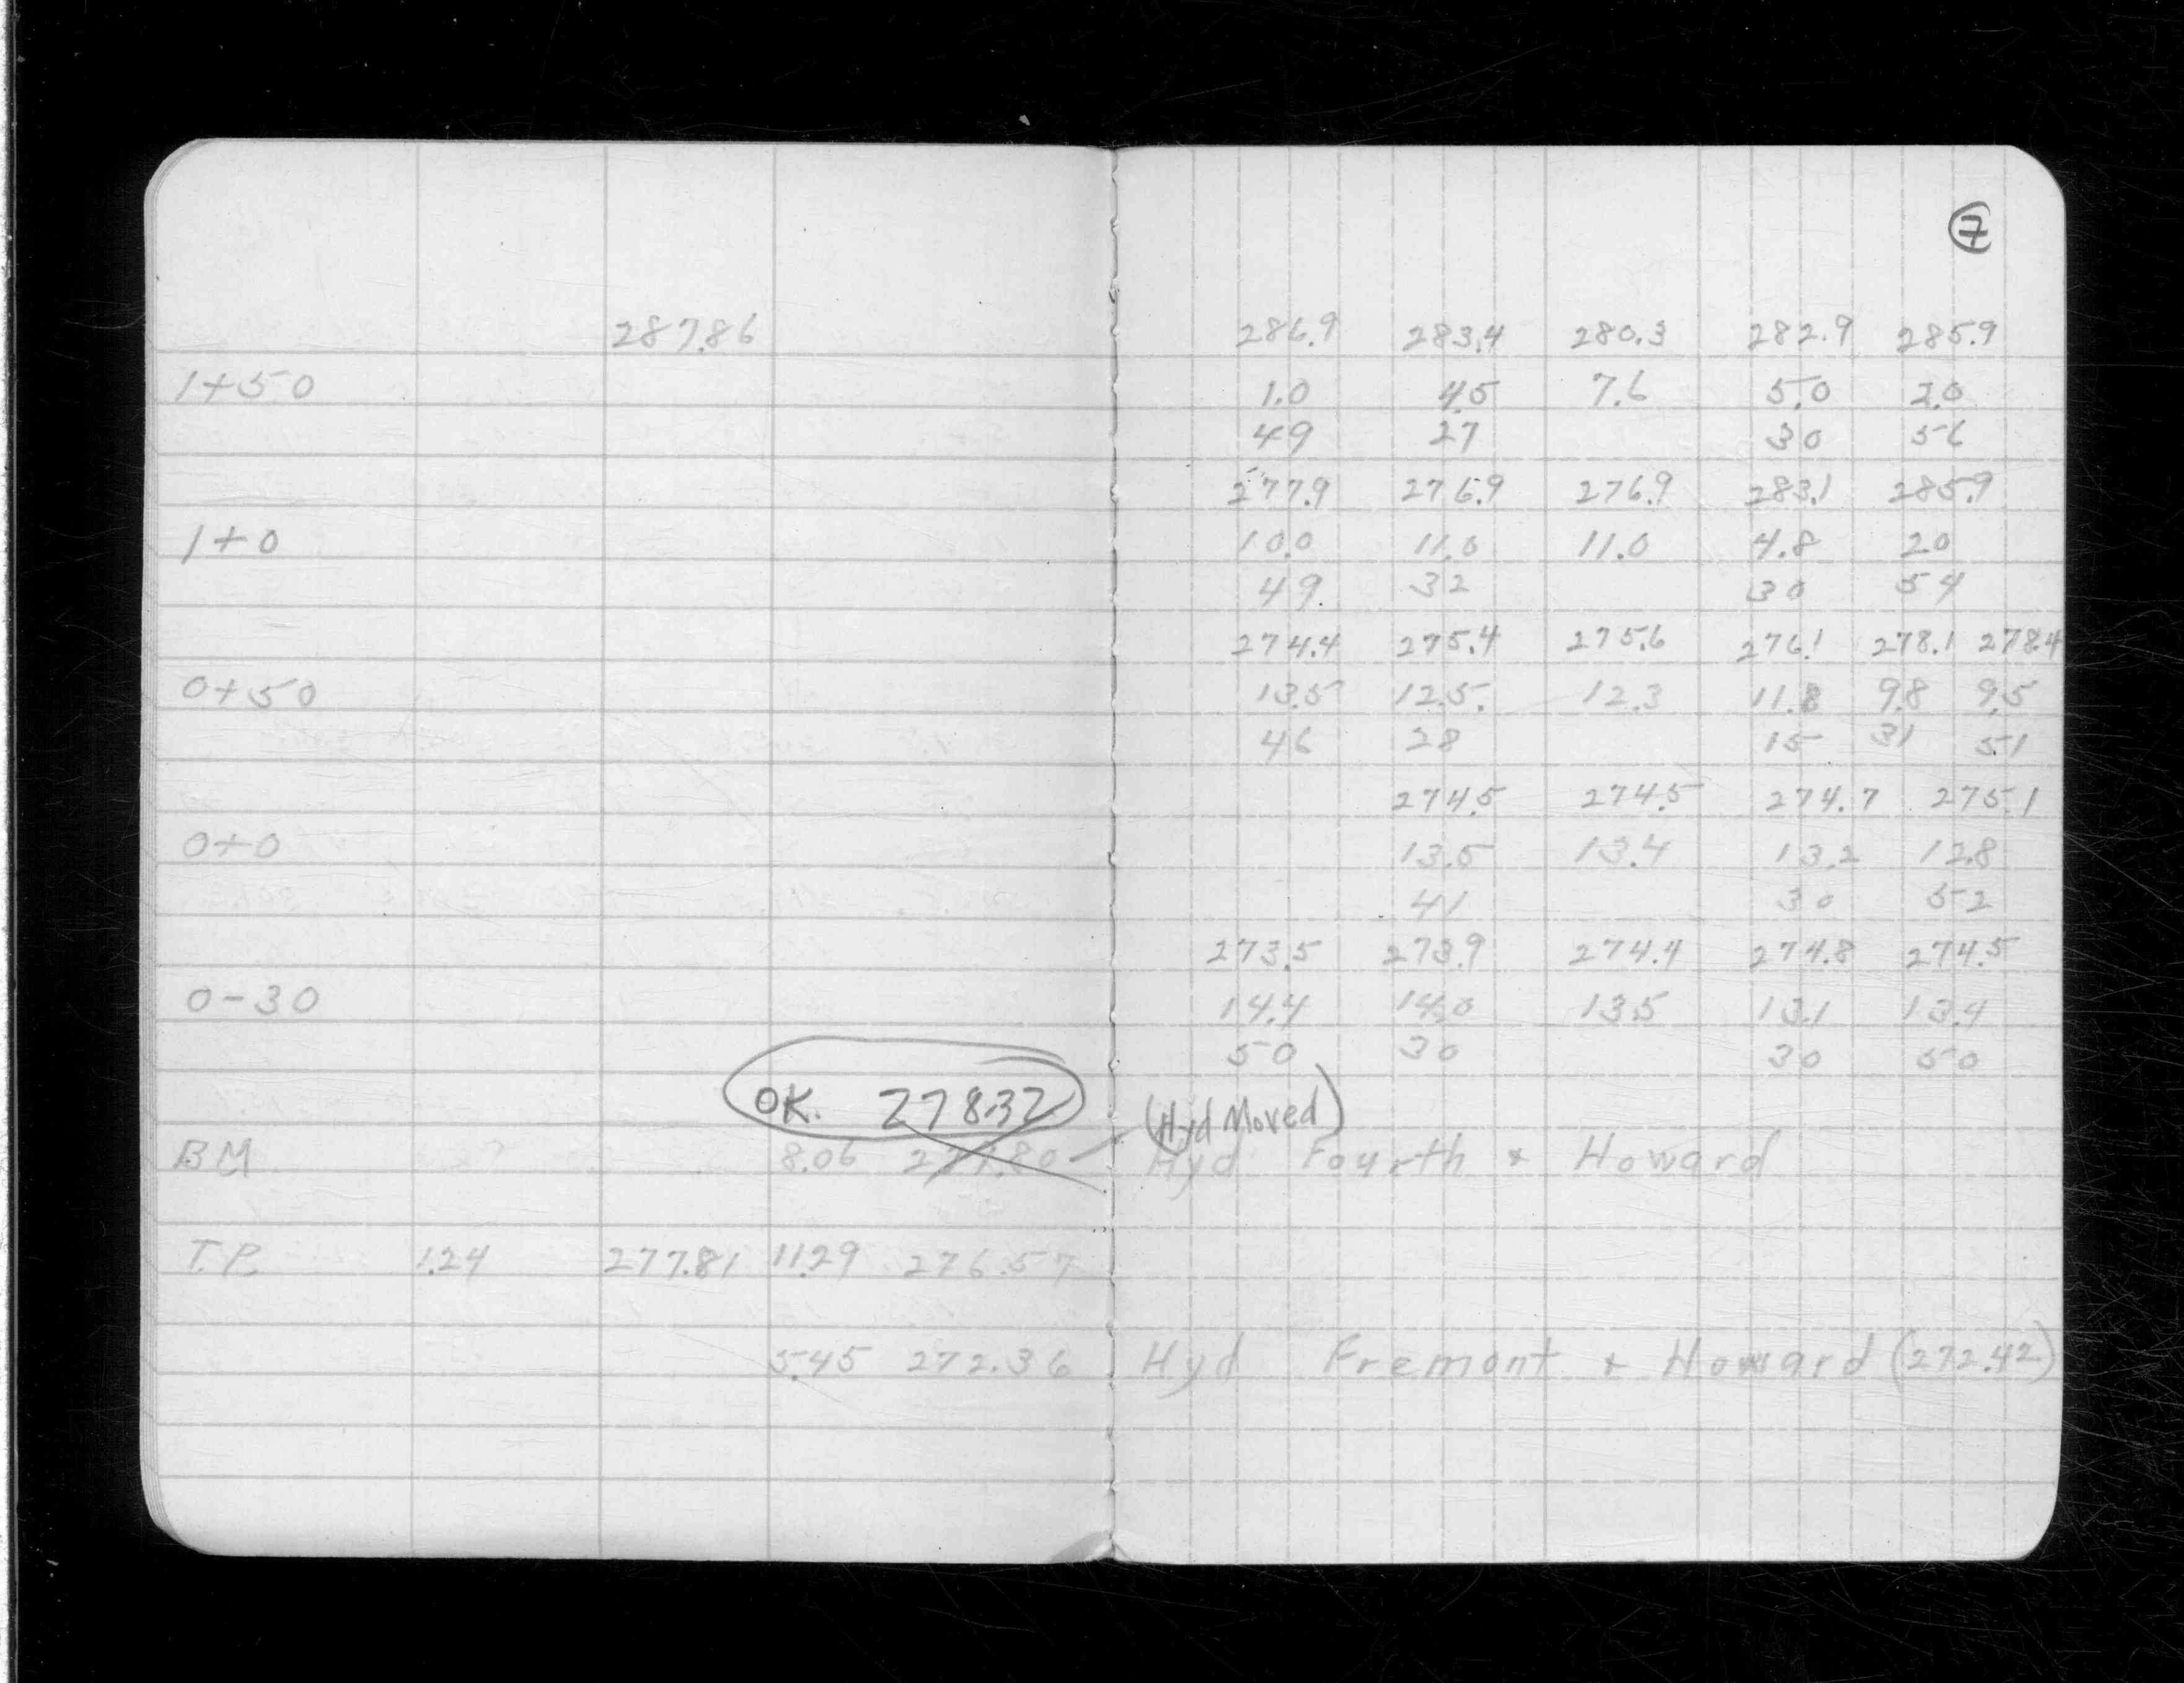 7
287.86 286.9 283.4 280.3 282.9 285.9
1+50 1.0 4.5 7.6 5.0 2.0
49 27 30 56
277.9 276.9 276.9 283.1 285.9
1+0 10.0 11.0 11.0 4.8 2.0
49 32 30 54
274.4 275.4 275.6 276.1 278.1 278.4
0+50 13.5 12.5 12.3 11.8 9.8 9.5
46 28 15 31 51
274.5 274.5 274.7 275.1
0+0 13.5 13.4 13.2 12.8
41 30 52
273.5 273.9 274.4 274.8 274.5
0-30 14.4 14.0 13.5 13.1 13.4
50 30 30 50
OK. 278.32 (Hyd Moved)
BM 8.06 Hyd Fourth & Howard
T.P. 1.24 277.81 11.29 276.57
5.45 272.36 Hyd Fremont & Howard (272.42)